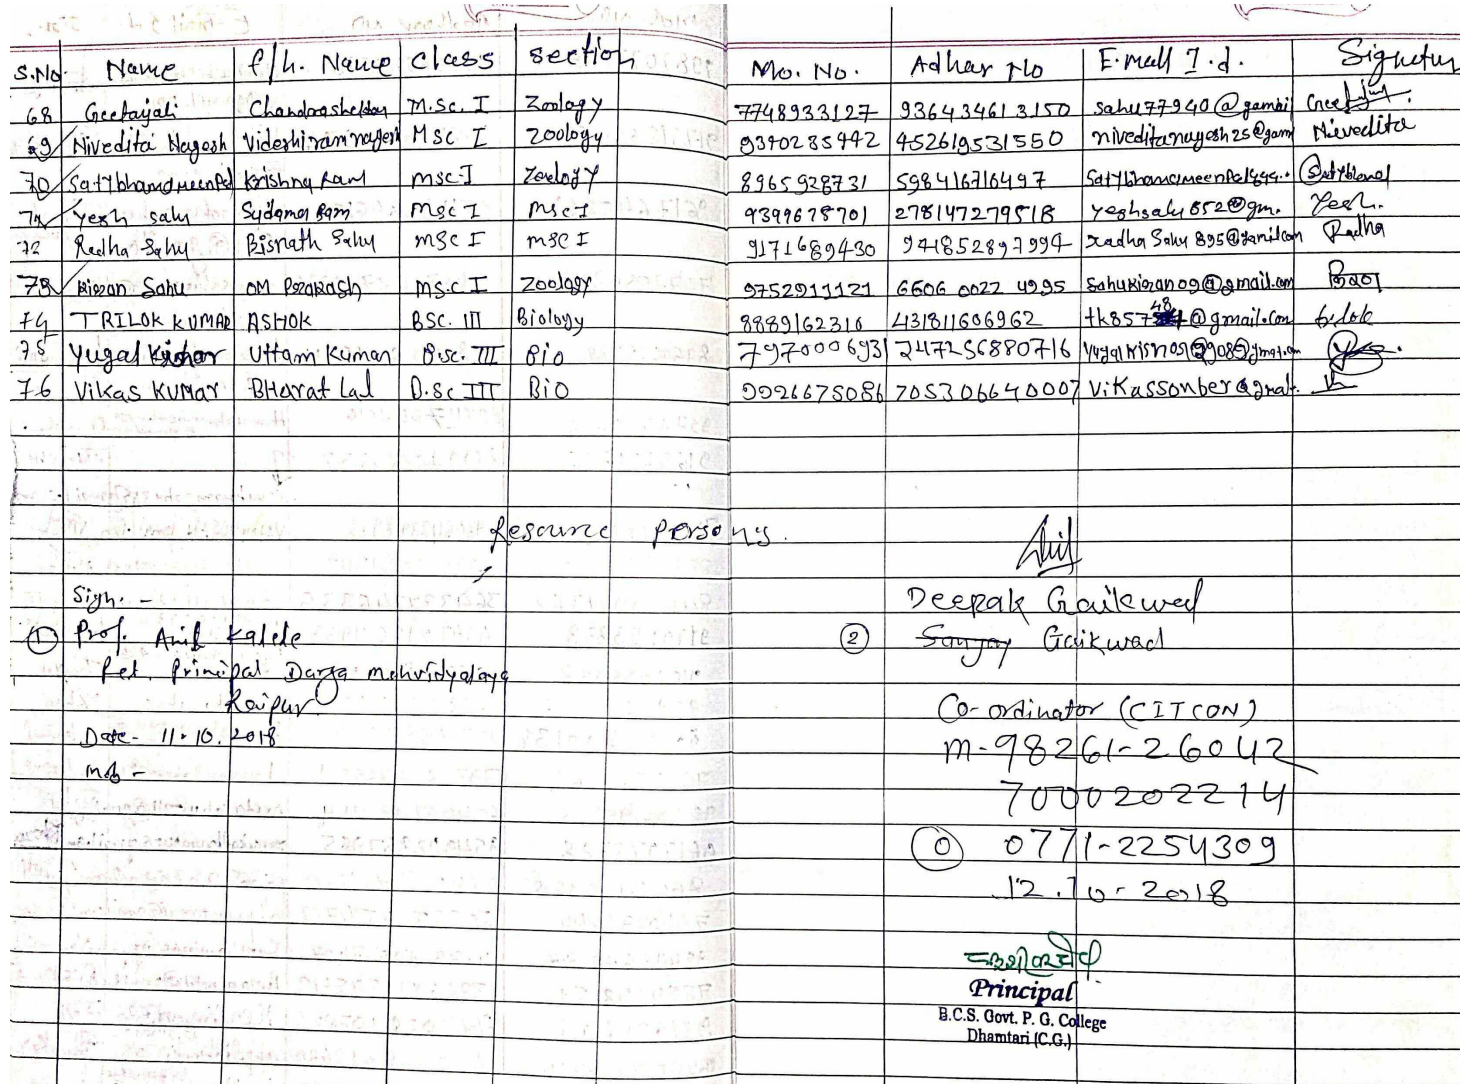 S.No. Name f/h. Name class section Mo. No. Adhar No E.mall I.d. Signatur
68 Geetajali Chandrashekhar M.sc. I Zoology 7748933127 936434613150 sahu77940@gamail
69 Nivedita Nagesh Videshiram nagesh Msc I Zoology 9340285442 452619531550 niveditanagesh25@gam Nievedita
70 Krishna Ram msc-I Zoology 8965928731 598416716497
71 Yesh sahu Sudama Ram msc I Msc I 9399678701 278147279518 yeshsahu852@gm. Yesh.
72 Radha Sahu Bisnath Sahu msc I msc I 9171689430 941852897994 radha Sahu 895@gamilcom Radha
73 Kiran Sahu OM Parakash ms.c I Zoology 9752911121 6606 0022 4995 Sahukiran09@gmail.com किरण
74 TRILOK KUMAR ASHOK BSC. III Biology 8889162316 431811606962 tk857 48 @gmail.com
75 Yugal Kishor Uttam Kumar B.sc. III Bio 7970006931 247256880716
76 Vikas KUMAR BHarat Lal B.sc III Bio 9926675086 705306640007 Vikassonber@gmal.
Resource Person's.
Sign. -
Deepak Gaikwad
① Prof. Anil Kalele ② Sanjay Gaikwad
Ret. Principal Durga mahvidyalaya
Raipur
Co-ordinator (CITCON)
Date- 11.10.2018 m-98261-26042
mob - 7000202214
(O) 0771-2254309
12.10-2018
Principal
B.C.S. Govt. P. G. College
Dhamtari (C.G.)